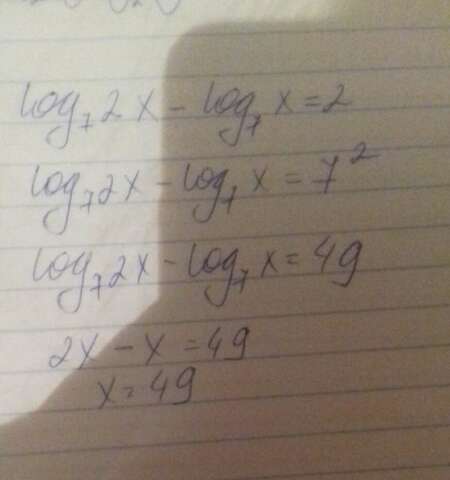 log₇ 2x - log₇ x = 2
log₇ 2x - log₇ x = 7²
log₇ 2x - log₇ x = 49
2x - x = 49
x = 49